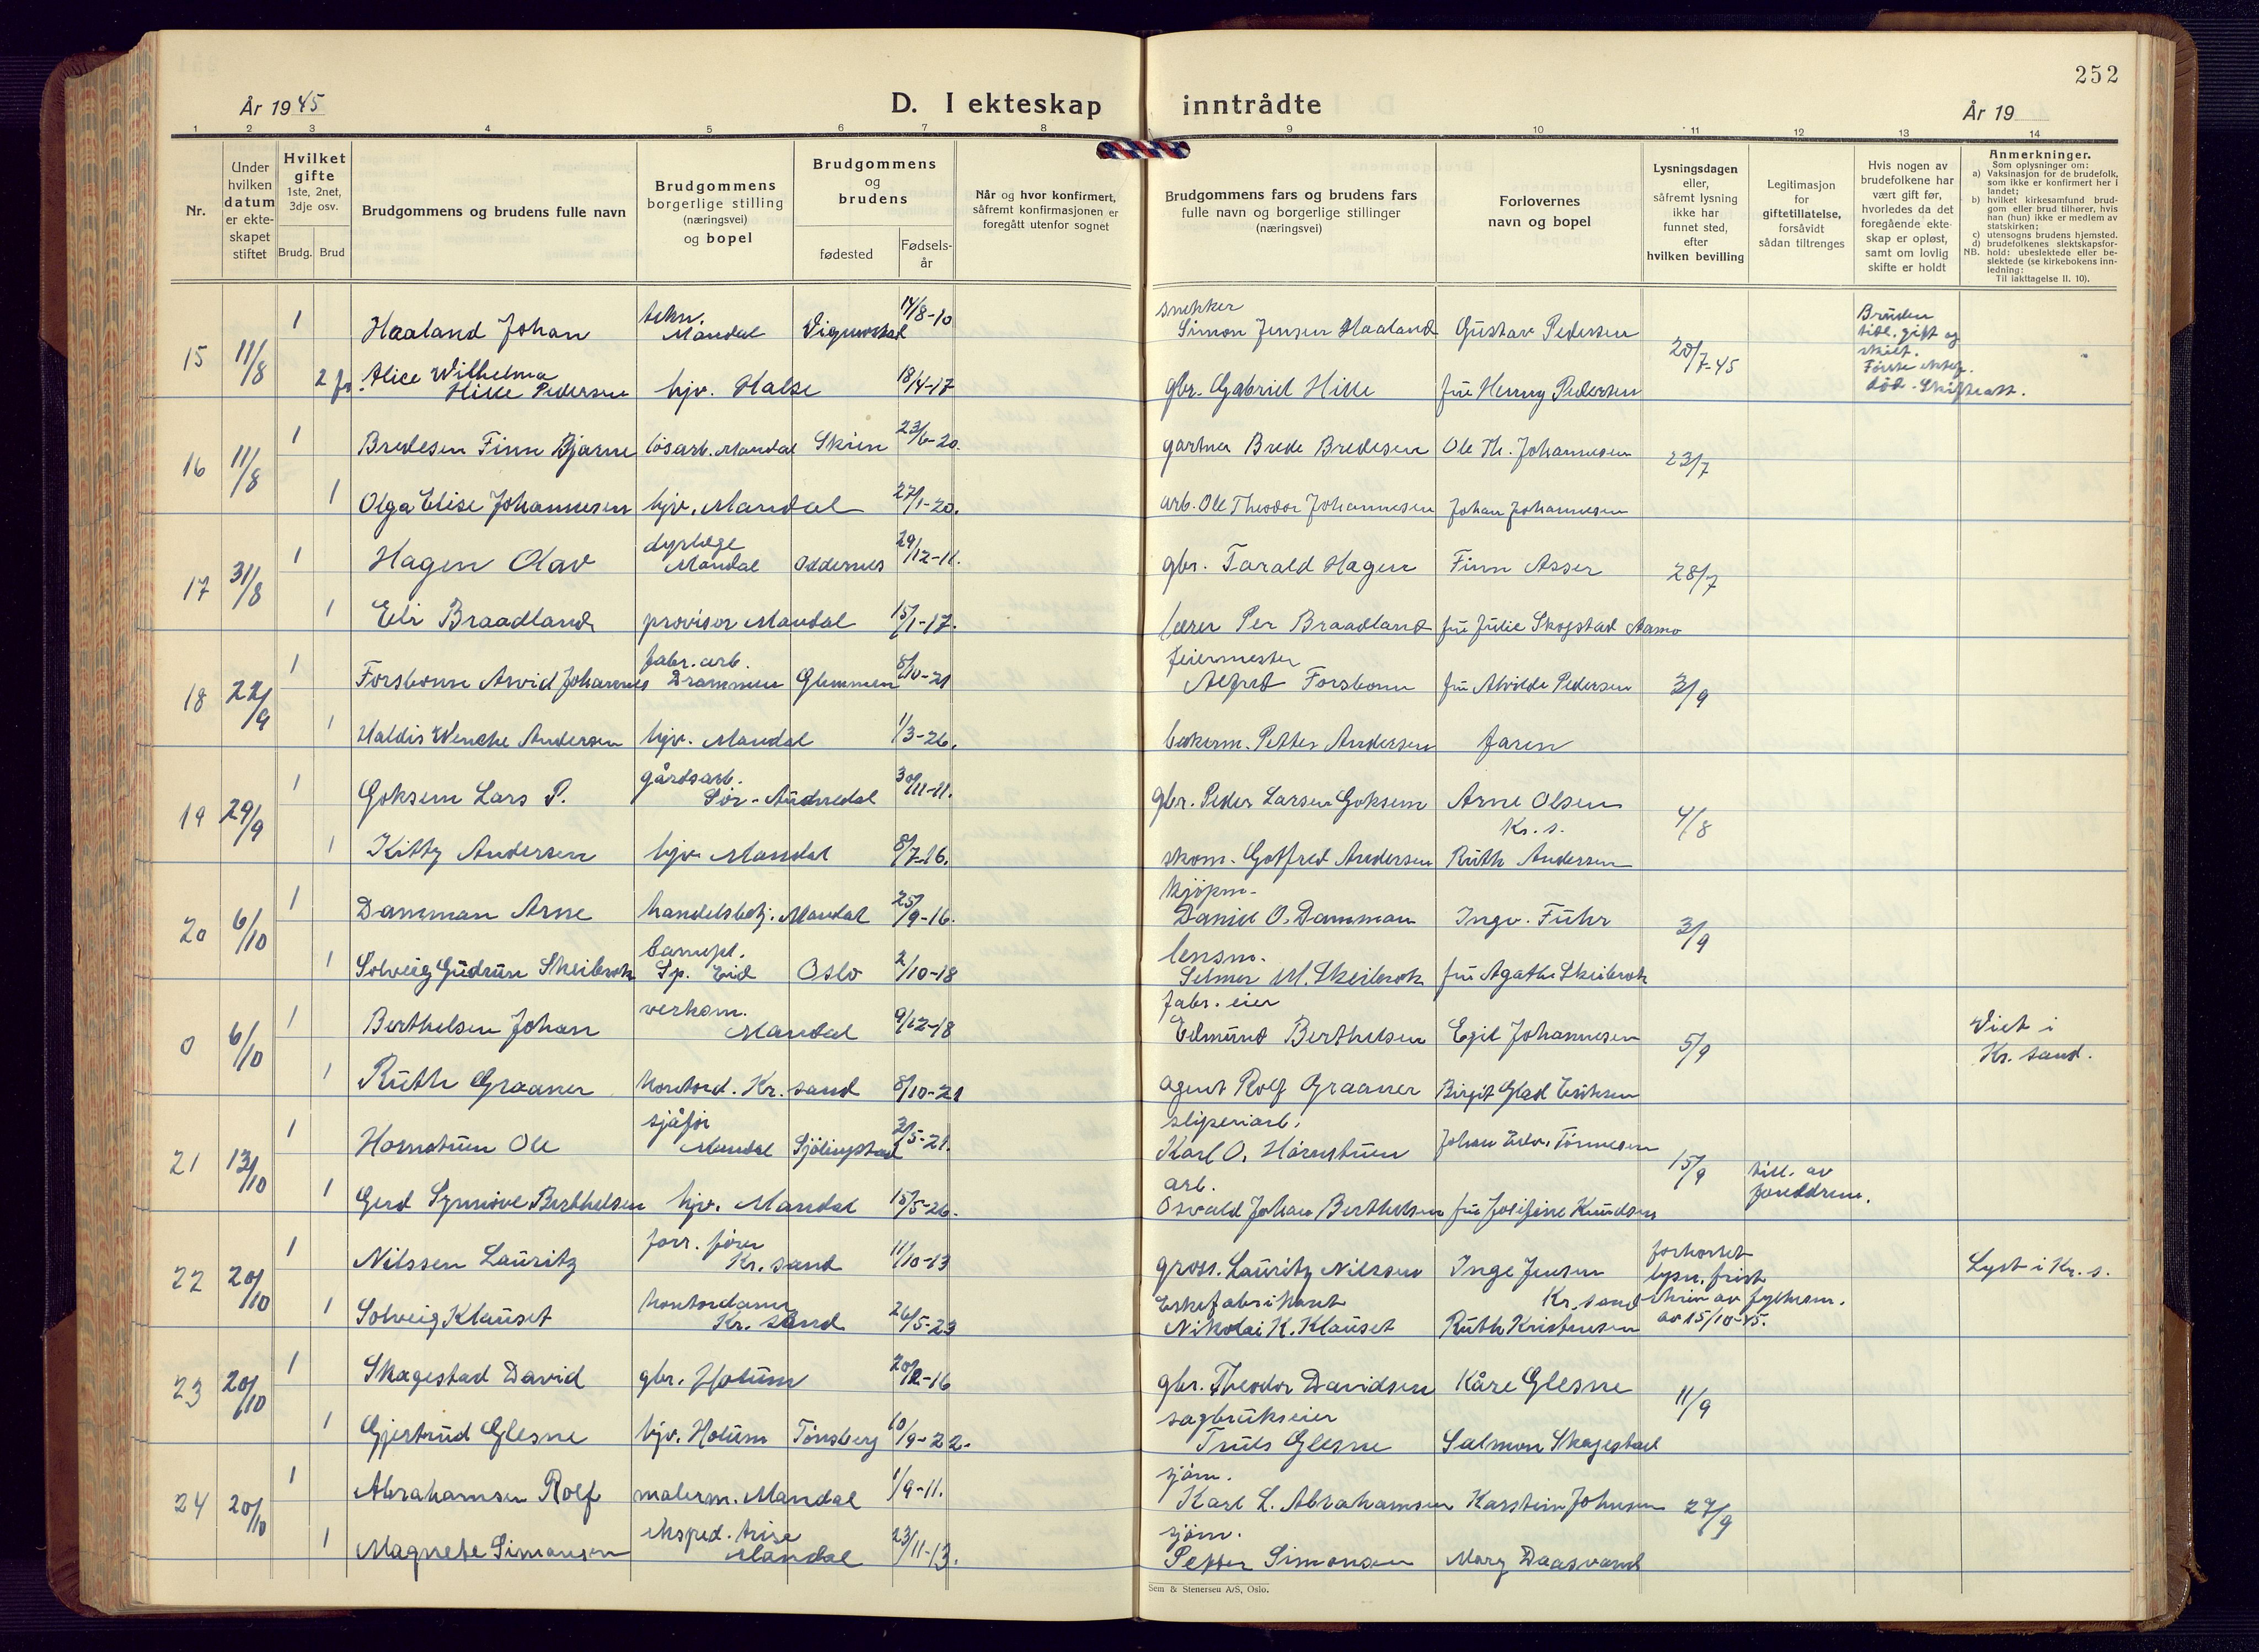 252
År 1945
D. I ekteskap inntrådte
År 19
1 2 3 4 5 6 7 8 9 10 11 12 13 14
Nr.
Under
hvilken
datum
er ekte-
skapet
stiftet
Hvilket
gifte
1ste, 2net,
3dje osv.
Brudg. Brud
Brudgommens og brudens fulle navn
Brudgommens
borgerlige stilling
(næringsvei)
og bopel
Brudgommens
og
brudens
fødested
Fødsels-
år
Når og hvor konfirmert,
såfremt konfirmasjonen er
foregått utenfor sognet
Brudgommens fars og brudens fars
fulle navn og borgerlige stillinger
(næringsvei)
Forlovernes
navn og bopel
Lysningsdagen
eller,
såfremt lysning
ikke har
funnet sted,
efter
hvilken bevilling
Legitimasjon
for
giftetillatelse,
forsåvidt
sådan tiltrenges
Hvis nogen av
brudefolkene har
vært gift før,
hvorledes da det
foregående ekte-
skap er opløst,
samt om lovlig
skifte er holdt
Anmerkninger.
Som oplysninger om:
a) Vaksinasjon for de brudefolk,
som ikke er konfirmert her i
landet;
b) hvilket kirkesamfund brud-
gom eller brud tilhører, hvis
han (hun) ikke er medlem av
statskirken;
c) utensogns brudens hjemsted.
d) brudefolkenes slektskapsfor-
hold: ubeslektede eller be-
slektede (se kirkebokens inn-
ledning:
NB. Til iakttagelse II. 10).
15 11/8 1 Haaland Johan tekn. Mandal Vigmostad 14/8-10 snekker Simon Jensen Haaland Gustav Pedersen 20/7-45
2 fr. Alice Wilhelma Hille Pedersen hjv. Halse 18/4-17 gbr. Gabriel Hille fru Henny Pedersen
Bruden
tidl. gift og
skilt.
Første ektef.
død - Skifteatt.
16 11/8 1 Bredesen Finn Bjarne løsarb. Mandal Skien 23/6-20. gartner Brede Bredesen Ole Th. Johannesen 23/7
1 Olga Elise Johannesen hjv. Mandal 27/1-20. arb. Ole Theodor Johannesen Johan Johannesen
17 31/8 1 Hagen Olav dyrlege Mandal Oddernes 29/12-11. gbr. Tarald Hagen Finn Asser 28/7
1 Elí Braadland provisor Mandal 15/1-17. lærer Per Braadland fru Julie Skogstad Aamo
18 22/9 1 Forsbom Arvid Johannes fabr. arb. Drammen Glemmen 8/10-21 feiermester Alfred Forsbom fru Alvilde Pedersen 3/9
1 Haldis Wenche Andersen hjv. Mandal 1/3-26. bakerm. Petter Andersen faren
19 29/9 1 Goksem Lars P. gårdsarb. Sør-Audnedal 30/11-11. gbr. Peder Larsen Goksem Arne Olsen Kr. s. 4/8
1 Kitty Andersen hjv Mandal 8/7-16. skom. Gotfred Andersen Ruth Andersen
20 6/10 1 Damman Arne handelsbetj. Mandal 25/9-16. kjøpm. Daniel O. Damman Ingv. Fuhr 3/9
1 Solveig Gudrun Skeibrok barnepl. Sp. Eid Oslo 2/10-18 lensm. Selmer M. Skeibrok fru Agathe Skeibrok
0 6/10 1 Berthelsen Johan verksm. Mandal 9/12-18 fabr. eier Edmund Berthelsen Egil Johannesen 5/9 Viet i Kr. sand.
1 Ruth Graaner kontord. Kr. sand 8/10-21 agent Rolf Graaner Birgit Glad Eriksen
21 13/10 1 Hornstuen Ole sjåfør Mandal Sjölingstad 3/5-21. sliperiarb. Karl O. Hornstuen Johan Edv. Tønnesen 15/9 till. av foreldrene.
1 Gerd Synnøve Berthelsen hjv. Mandal 15/5-26. arb. Osvald Johan Berthelsen fru Josefine Knudsen
22 20/10 1 Nilssen Lauritz forr. fører Kr. sand 11/10-13 gross. Lauritz Nilssen Inge Jensen Kr. sand forkortet lysn. frist skriv av fylkesm. av 15/10-45. Lyst i Kr. s.
1 Solveig Klauset kontordame Kr. sand 26/5-23 Eskefabrikant Nikolai K. Klauset Ruth Kristensen
23 20/10 1 Skagestad David gbr. Holum 20/12-16 gbr. Theodor Davidsen Kåre Glesne 11/9
1 Gjertrud Glesne hjv. Holum Tønsberg 10/9-22. sagbrukseier Truls Glesne Salmon Skagestad
24 20/10 1 Abrahamsen Rolf malerm. Mandal 1/9-11. sjøm. Karl L. Abrahamsen Karstein Johnsen 27/9
1 Magnete Simonsen eksped. trise Mandal 23/11-13. sjøm. Petter Simonsen Mary Daasvand
Sem & Stenersen A/S, Oslo.